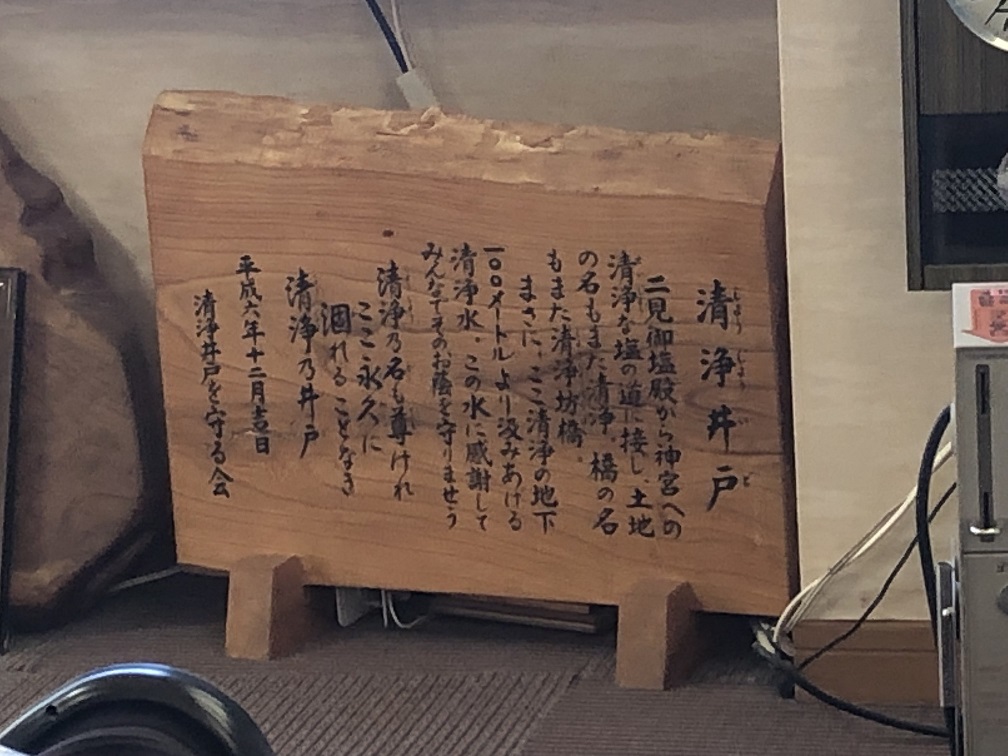 清浄井戸
しょうじょういど
二見御塩殿から神宮への
清浄な塩の道に接し、土地
の名もまた清浄、橋の名
もまた清浄坊橋。
まさに、ここ清浄の地下
一〇〇メートルより汲みあげる
清浄水、この水に感謝して
みんなでそのお蔭を守りませう
清浄乃名も尊けれ
ここ永久に
涸れることなき
清浄乃井戸
平成六年十二月吉日
清浄井戸を守る会